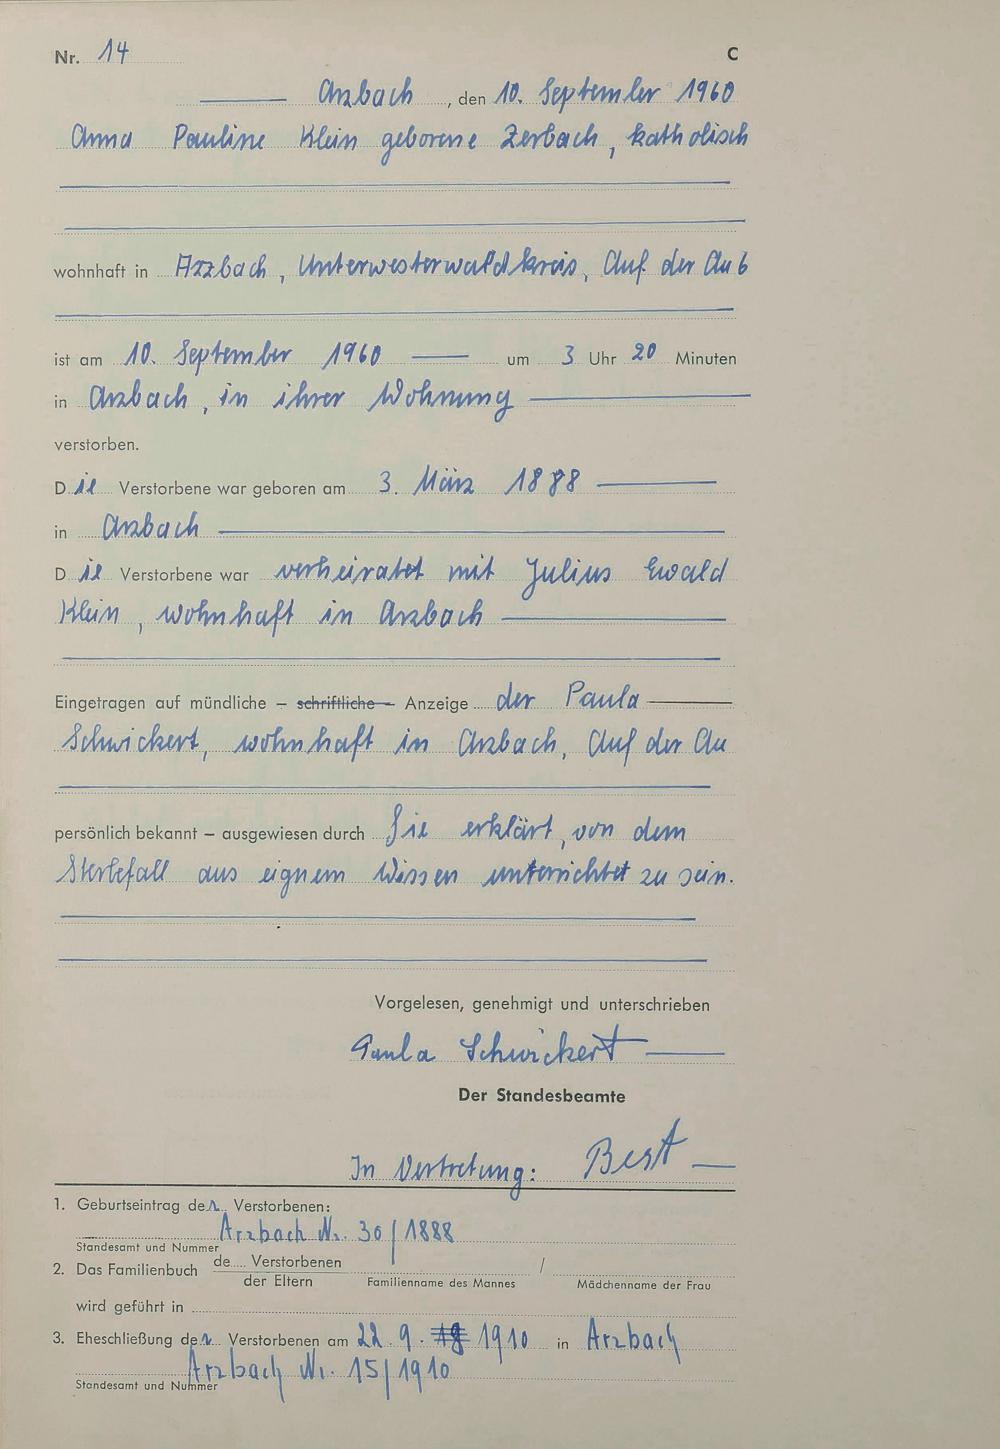 Nr. 14 C
Arzbach, den 10. September 1960
Anna Pauline Klein geborene Zerbach, katholisch
wohnhaft in Arzbach, Unterwesterwaldkreis, Auf der Au 6
ist am 10. September 1960 um 3 Uhr 20 Minuten
in Arzbach, in ihrer Wohnung
verstorben.
Die Verstorbene war geboren am 3. März 1888
in Arzbach
Die Verstorbene war verheiratet mit Julius Ewald
Klein, wohnhaft in Arzbach
Eingetragen auf mündliche – schriftliche – Anzeige der Paula
Schwickert, wohnhaft in Arzbach, Auf der Au
persönlich bekannt – ausgewiesen durch Sie erklärt, von dem
Sterbefall aus eignem Wissen unterrichtet zu sein.
Vorgelesen, genehmigt und unterschrieben
Paula Schwickert
Der Standesbeamte
In Vertretung: Best
1. Geburtseintrag der Verstorbenen:
Arzbach Nr. 30/1888
Standesamt und Nummer
2. Das Familienbuch de.... Verstorbenen /
der Eltern Familienname des Mannes Mädchenname der Frau
wird geführt in
3. Eheschließung der Verstorbenen am 22. 9. 1910 in Arzbach
Arzbach Nr. 15/1910
Standesamt und Nummer